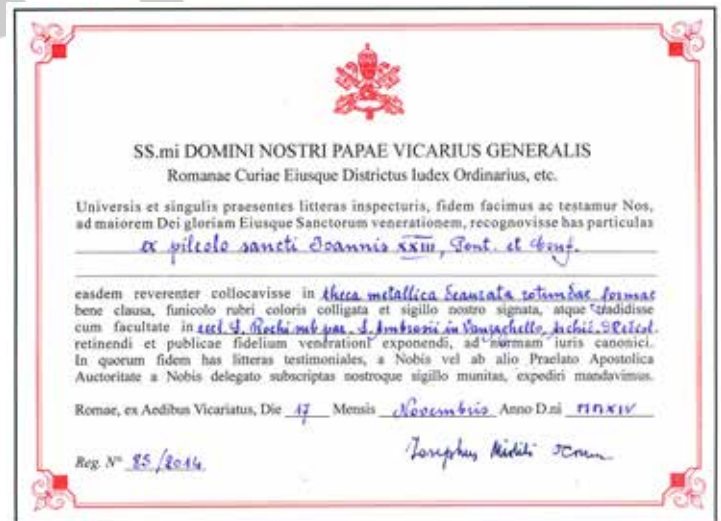 SS.mi DOMINI NOSTRI PAPAE VICARIUS GENERALIS
Romanae Curiae Eiusque Districtus Iudex Ordinarius, etc.
Universis et singulis praesentes litteras inspecturis, fidem facimus ac testamur Nos,
ad maiorem Dei gloriam Eiusque Sanctorum venerationem, recognovisse has particulas
ex pileolo sancti Ioannis XXIII, Pont. et Conf.
easdem reverenter collocavisse in theca metallica deaurata rotundae formae
bene clausa, funicolo rubri coloris colligata et sigillo nostro signata, atque tradidisse
cum facultate in eccl. S. Rochi sub par. S. Ambrosii in Vanzaghello,
retinendi et publicae fidelium venerationi exponendi, ad normam iuris canonici.
In quorum fidem has litteras testimoniales, a Nobis vel ab alio Praelato Apostolica
Auctoritate a Nobis delegato subscriptas nostroque sigillo munitas, expediri mandavimus.
Romae, ex Aedibus Vicariatus, Die 17 Mensis Novembris Anno D.ni MMXIV
Reg. N° 85/2014 Iosephus Midili